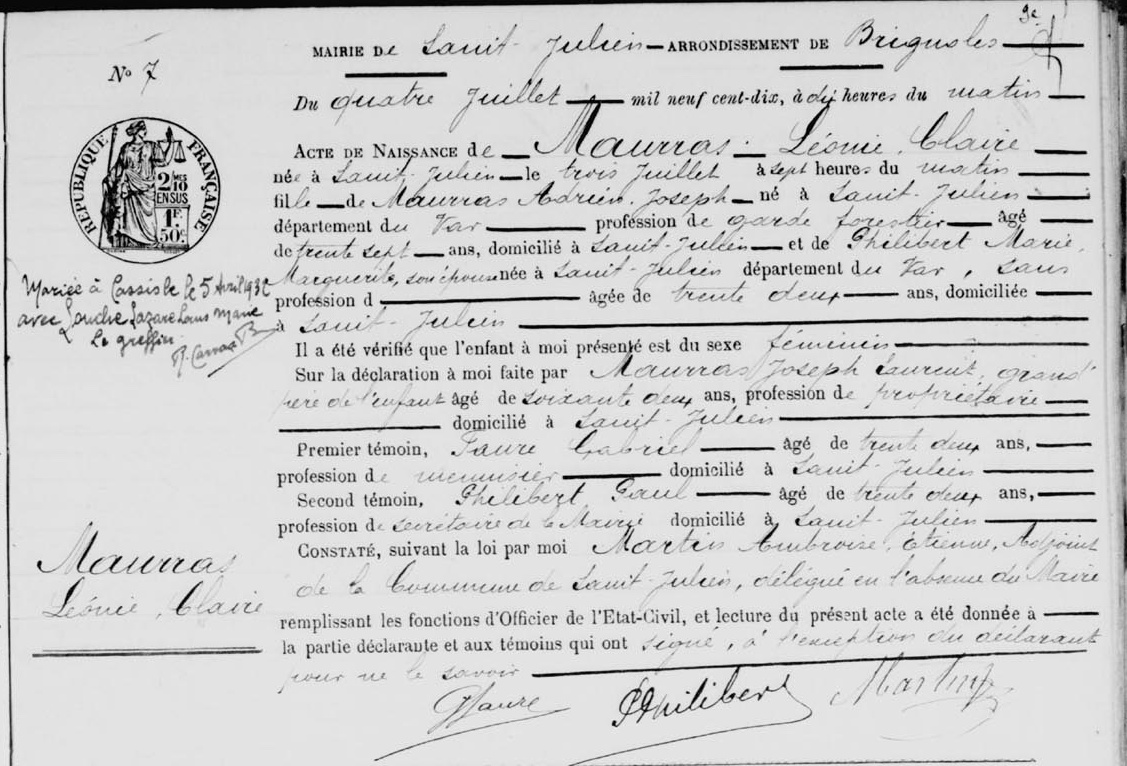 9e
MAIRIE De Saint-Julien — ARRONDISSEMENT DE Brignoles
No 7
Du quatre Juillet — mil neuf cent-dix, à dix heures du matin
ACTE DE NAISSANCE de — Maurras — Léonie, Claire
née à Saint-Julien — le trois Juillet à sept heures du matin
fille — de Maurras Adrien, Joseph — né à Saint-Julien
département du Var — profession de garde forestier — âgé
de trente sept — ans, domicilié à Saint-Julien — et de Philibert Marie,
Marguerite, son épouse née à Saint-Julien département du Var, sans
profession d — âgée de trente deux — ans, domiciliée
à Saint-Julien
Il a été vérifié que l'enfant à moi présenté est du sexe féminin
Sur la déclaration à moi faite par Maurras Joseph Laurent, grand
père de l'enfant âgé de soixante deux ans, profession de propriétaire
domicilié à Saint-Julien
Premier témoin, Faure Gabriel — âgé de trente deux ans,
profession de menuisier — domicilié à Saint-Julien
Second témoin, Philibert Paul — âgé de trente deux ans,
profession de secrétaire de la Mairie domicilié à Saint-Julien
CONSTATÉ, suivant la loi par moi Martin Ambroise, Etienne, Adjoint
de la Commune de Saint-Julien, délégué en l'absence du Maire
remplissant les fonctions d'Officier de l'Etat-Civil, et lecture du présent acte a été donnée à
la partie déclarante et aux témoins qui ont signé, à l'exception du déclarant
pour ne le savoir
G Faure PPhilibert Martin
RÉPUBLIQUE FRANÇAISE
2/10 MES
EN SUS
1F.
50c.
Mariée à Cassis le 5 Avril 193
avec Louche Lazare Louis Marie
Le greffier
Maurras
Léonie, Claire